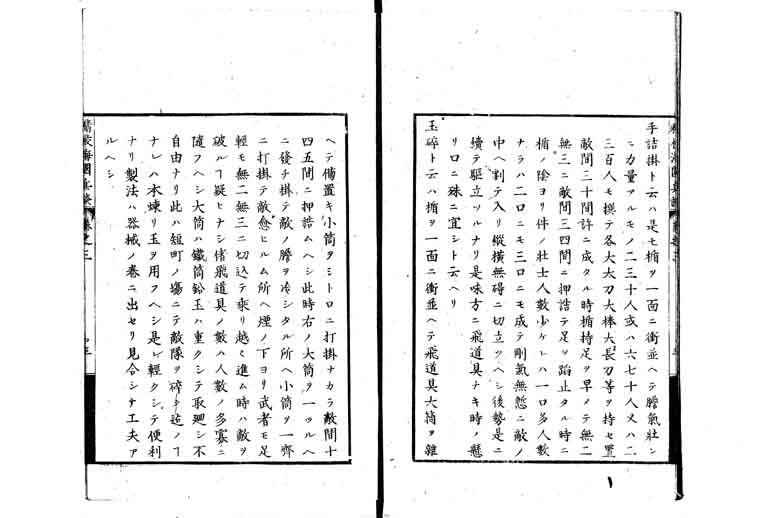 手詰掛ト云ハ是モ楯ヲ一面ニ衝並ヘテ膽氣壯ン
ニ力量アルモノ二三十人或ハ六七十人又ハ二
三百人モ撰テ各大太刀大棒大長刀等ヲ持セ置
敵間三十間許ニ成タル時楯持足ヲ早メテ無二
無三ニ敵間三四間ニ押詰テ足ヲ蹈止タル時ニ
楯ノ陰ヨリ件ノ壯士人數少ケレハ一口多人數
ナラハ二口ニモ三口ニモ成テ剛氣無慙ニ敵ノ
中ヘ割テ入リ縱横無碍ニ切立ツヘシ後勢是ニ
續テ驅立ツルナリ是味方ニ飛道具ナキ時ノ懸
リ口ニ殊ニ宜シト云ヘリ
玉碎ト云ハ楯ヲ一面ニ衝並ヘテ飛道具大筒ヲ雜
ヘテ備置キ小筒ヲシトロニ打掛ナカラ敵間十
四五間ニ押詰ムヘシ此時右ノ大筒ヲ一ツルヘ
ニ發チ掛テ敵ノ膽ヲ冷シタル所ヘ小筒ヲ一齊
ニ打掛テ敵愈ヒルム所ヘ煙ノ下ヨリ武者モ足
輕モ無二無三ニ切込テ乘リ越ヘ進ム時ハ敵ヲ
破ルヿ疑ヒナシ偖飛道具ノ數ハ人數ノ多寡ニ
隨フヘシ大筒ハ鐵筒鉛玉ハ重クシテ取廻シ不
自由ナリ此ハ短町ノ場ニテ敵隊ヲ碎ク迄ノヿ
ナレハ木筒煉リ玉ヲ用フヘシ是レ輕クシテ便利
ナリ製法ハ器械ノ卷ニ出セリ見合シテ工夫ア
ルヘシ
海國兵談
卷之三